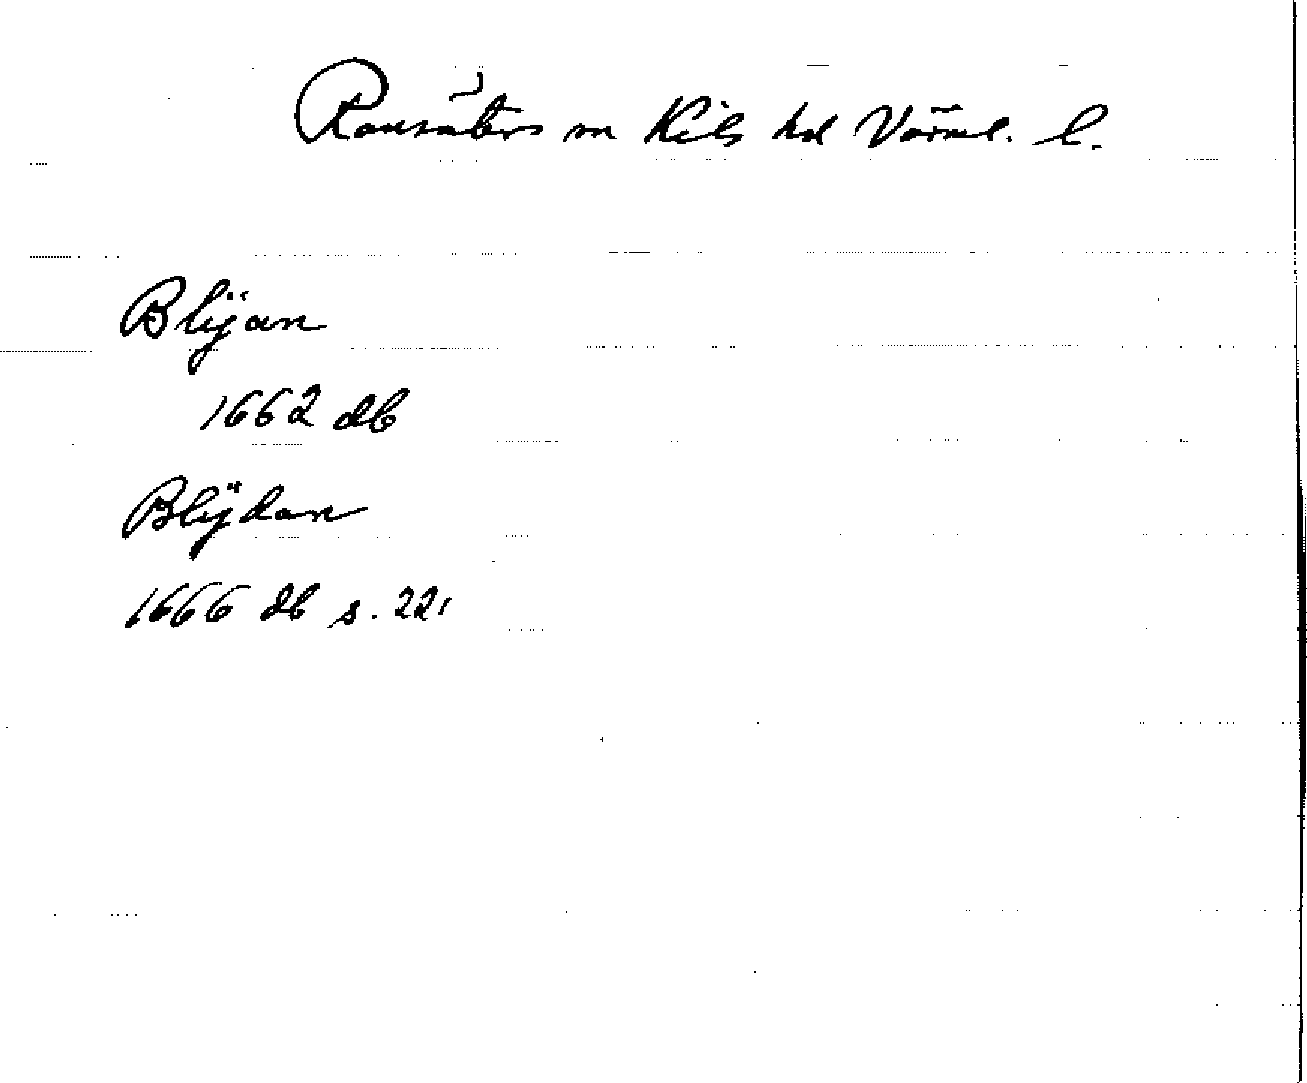 Ransäters sn Kils hd Värml. l.
Blÿan
1662 db
Blÿdan
1666 db s. 221